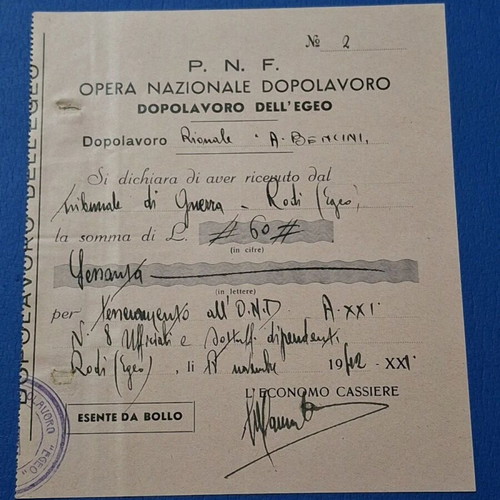 № 2
P. N. F.
OPERA NAZIONALE DOPOLAVORO
DOPOLAVORO DELL'EGEO
Dopolavoro Rionale "A. BENCINI"
Si dichiara di aver ricevuto dal
Tribunale di Guerra - Rodi (Egeo)
la somma di L. # 60 #
(in cifre)
Sessanta
(in lettere)
per Tesseramento all'O.N.D. A. XXI°
N° 8 Ufficiali e Sottuff. dipendenti
Rodi (Egeo), li novembre 1942 - XXI°
L'ECONOMO CASSIERE
ESENTE DA BOLLO
DOPOLAVORO DELL'EGEO
DOPOLAVORO "EGEO"